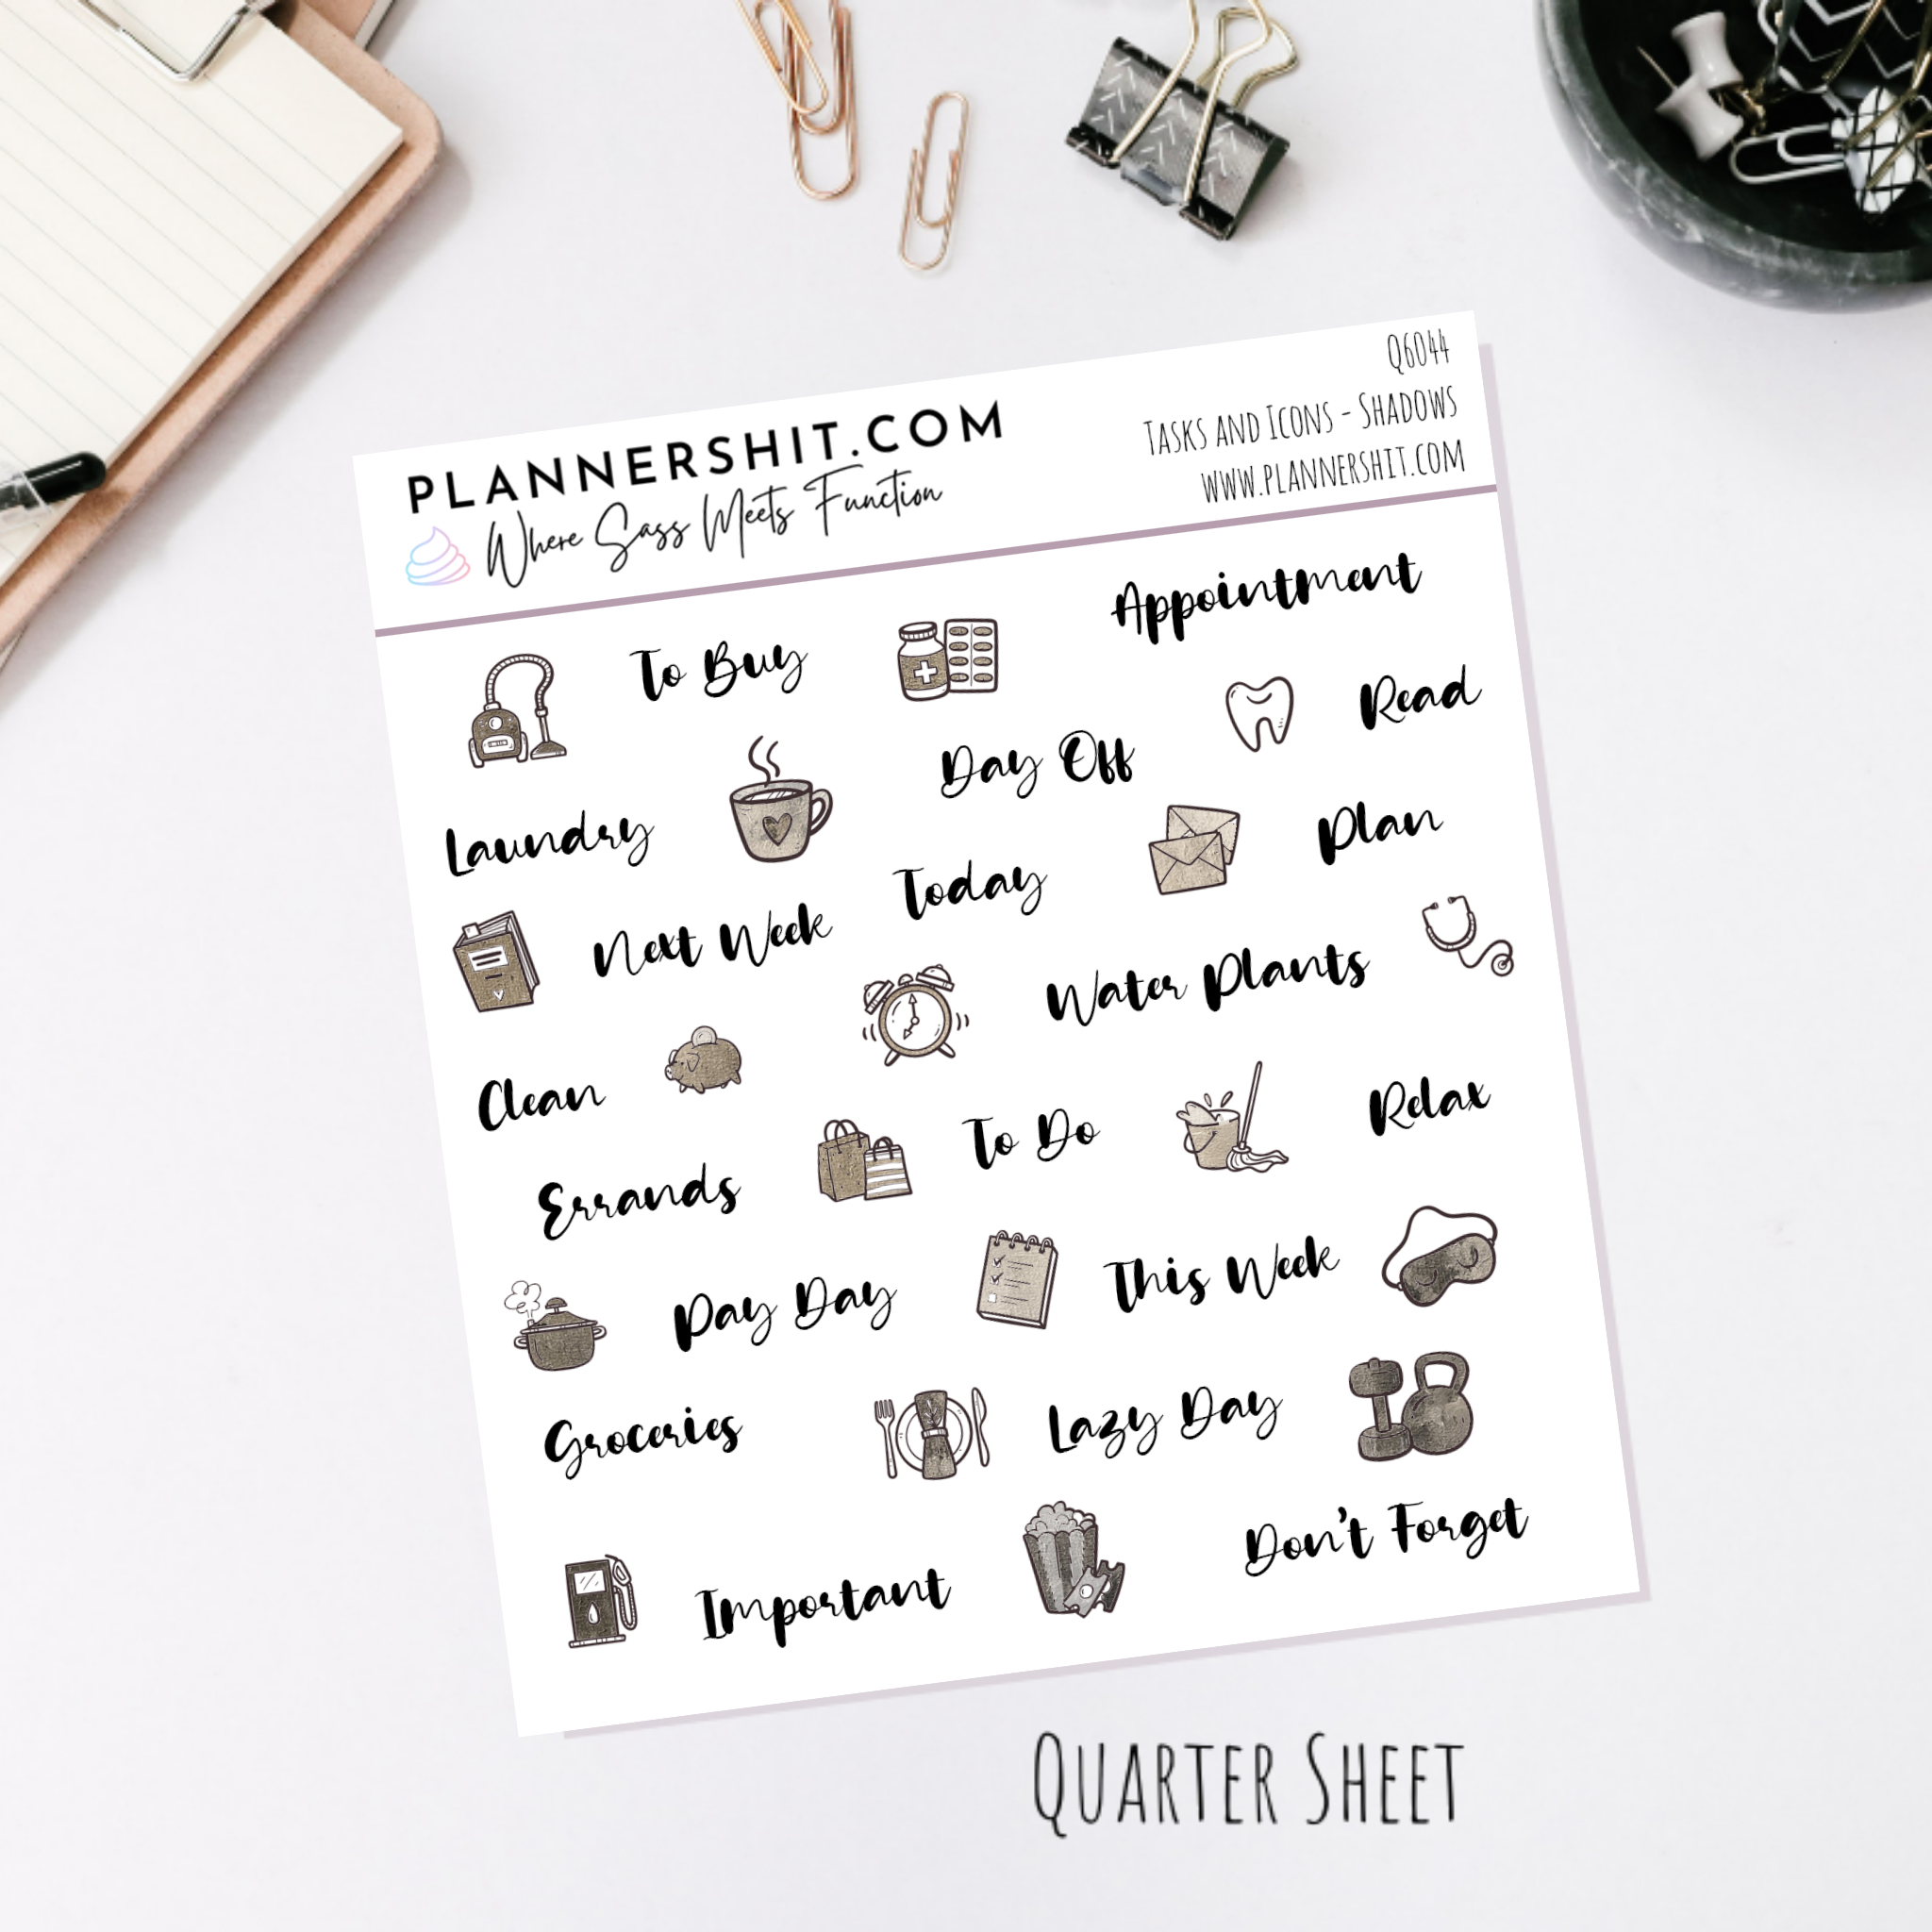 PLANNERSHIT.COM
Where Sass Meets Function
Q6044
Tasks and Icons - Shadows
www.plannershit.com
To Buy
Appointment
Read
Day Off
Laundry
Plan
Today
Next Week
Water Plants
Clean
Relax
To Do
Errands
This Week
Pay Day
Lazy Day
Groceries
Don't Forget
Important
Quarter Sheet